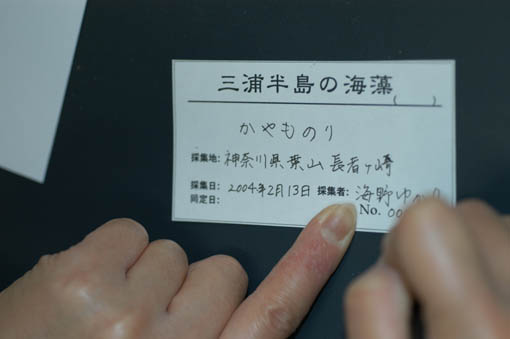 三浦半島の海藻
( )
かやものり
採集地: 神奈川県葉山長者ヶ崎
採集日: 2004年2月13日 採集者: 海野ゆ
同定日: No. 00